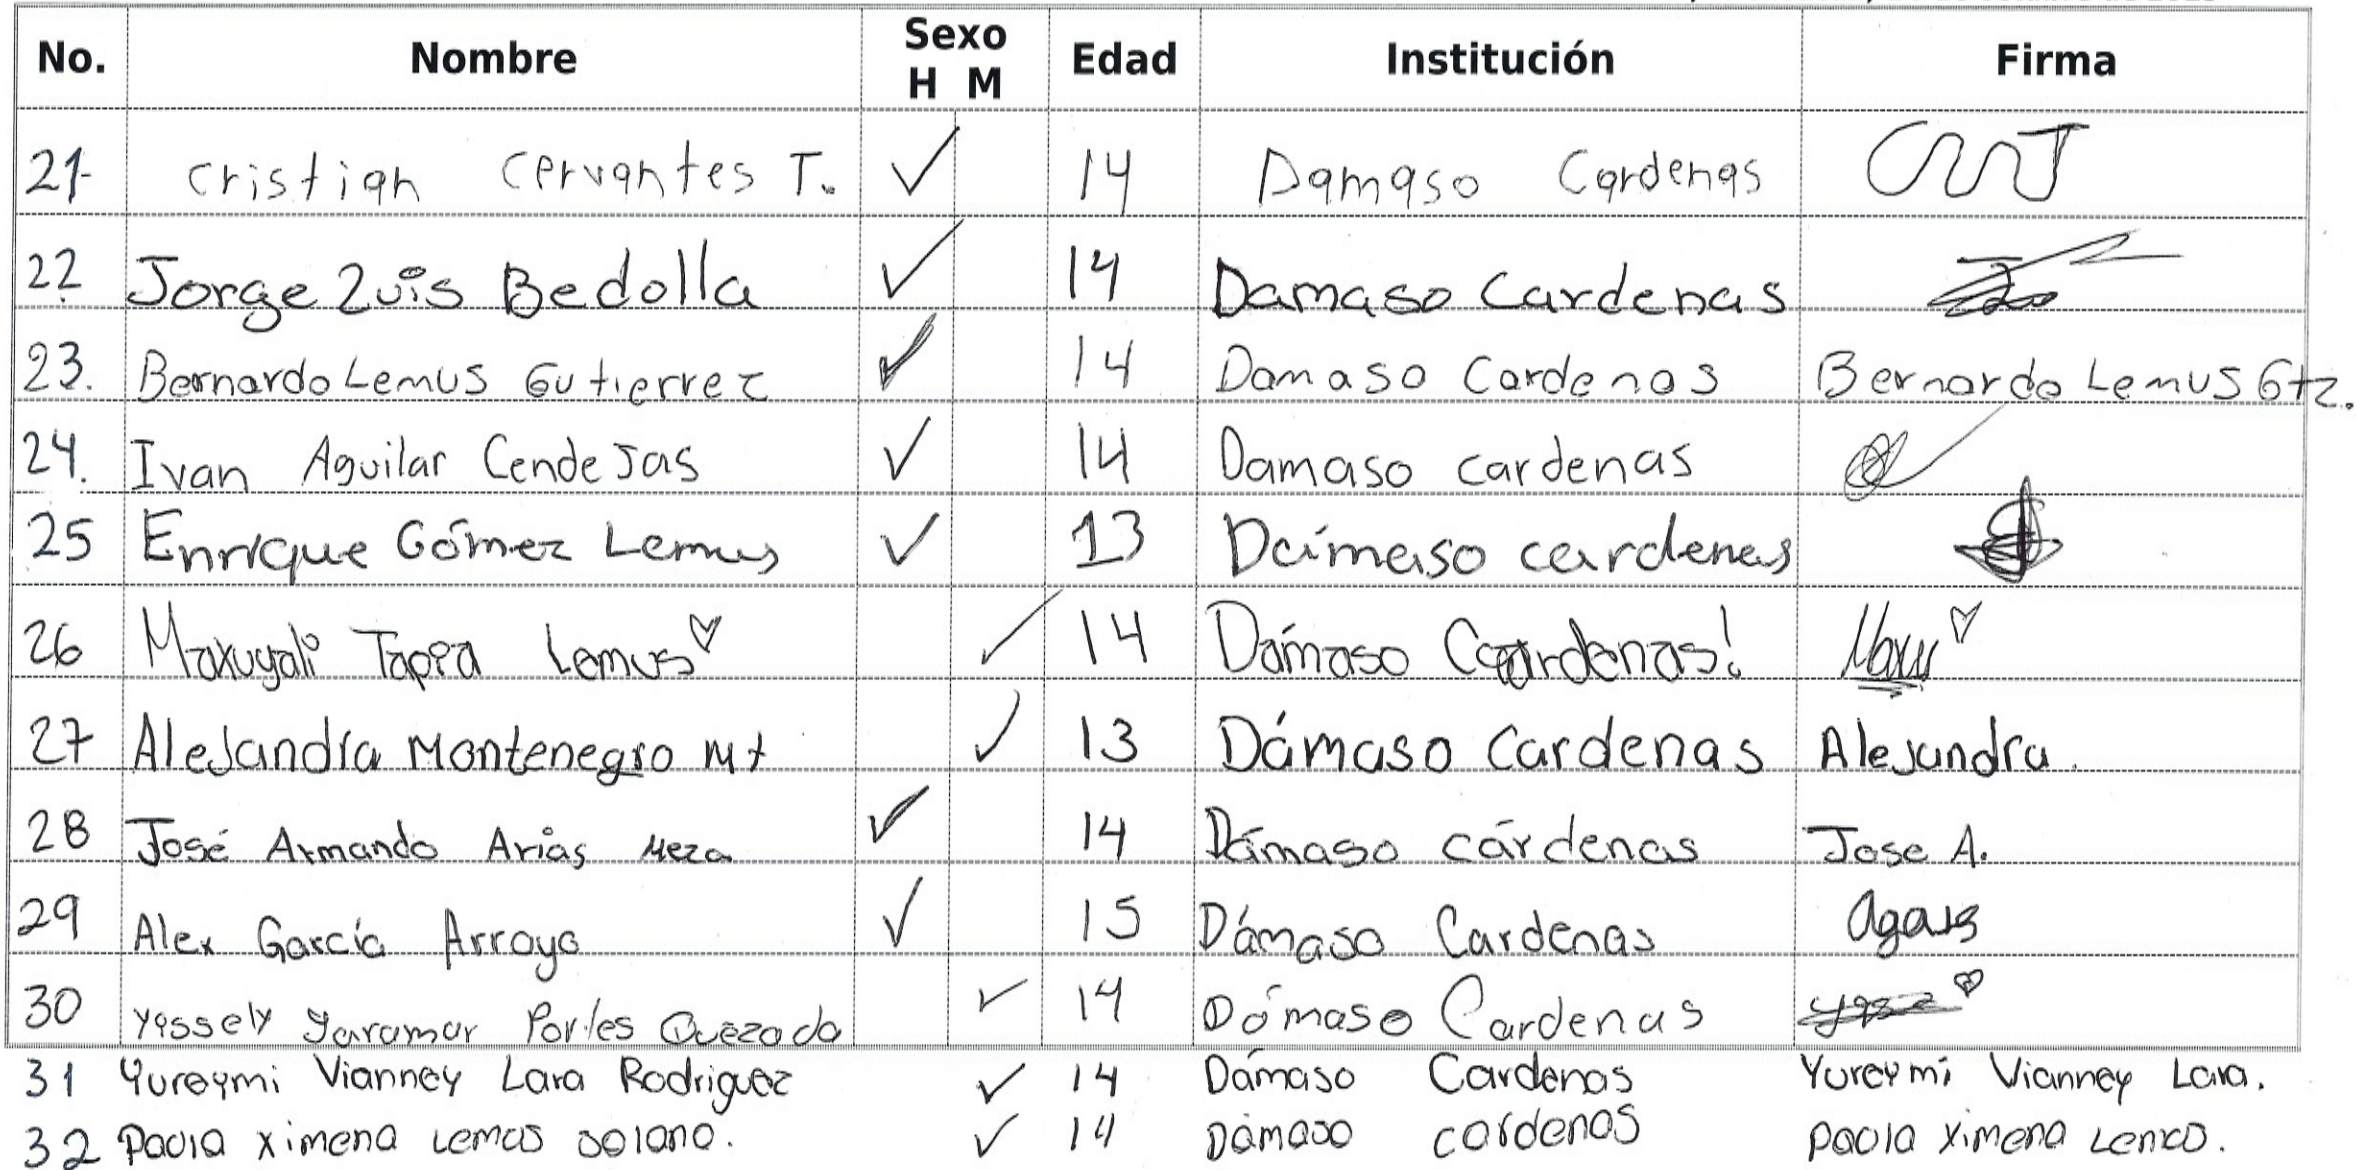 No. Nombre Sexo H M Edad Institución Firma
21- Cristian Cervantes T. ✓ 14 Damaso Cardenas
22. Jorge Luis Bedolla ✓ 14 Damaso Cardenas
23. Bernardo Lemus Gutierrez ✓ 14 Damaso Cardenas Bernardo Lemus Gtz.
24. Ivan Aguilar Cendejas ✓ 14 Damaso cardenas
25 Enrique Gómez Lemus ✓ 13 Dámaso cardenas
26 Maxugali Tapia Lemus ♡ ✓ 14 Dámaso Cardenas! Maxu ♡
27 Alejandra Montenegro Mt ✓ 13 Dámaso Cardenas Alejandra.
28 José Armando Arias Meza ✓ 14 Dámaso cárdenas Jose A.
29 Alex García Arroyo ✓ 15 Dámaso Cardenas
30 Yessely Yaramar Porles Quezada ✓ 14 Dámaso Cardenas
31 Yureymi Vianney Lara Rodriguez ✓ 14 Dámaso Cardenas Yureymi Vianney Lara.
32 Paola Ximena Lemus Solano. ✓ 14 Dámaso cardenas Paola Ximena Lemus.